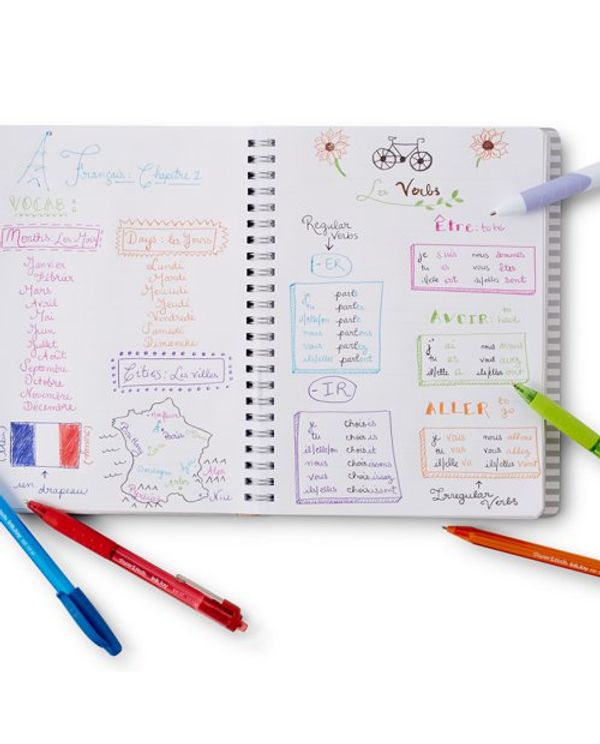 Français: Chapitre 1
VOCAB:
Months: Les Mois
Janvier
Février
Mars
Avril
Mai
Juin
Juillet
Août
Septembre
Octobre
Novembre
Décembre
Days:
Lundi
Mardi
Mercredi
Jeudi
Vendredi
Samedi
Dimanche
Cities: Les Villes
Paris
Nice
un drapeau
Les Verbs
Regular
Verbs
-ER
je parle
tu parles
il/elle/on parle
nous parlons
vous parlez
ils/elles parlent
-IR
je choisis
tu choisis
il/elle/on choisit
nous choisissons
vous choisissez
ils/elles choisissent
Être: to be
je suis nous sommes
tu es vous êtes
il/elle est ils/elles sont
AVOIR: to have
j' ai nous avons
tu as vous avez
il/elle a ils/elles ont
ALLER: to go
je vais nous allons
tu vas vous allez
il/elle va ils/elles vont
Irregular
Verbs